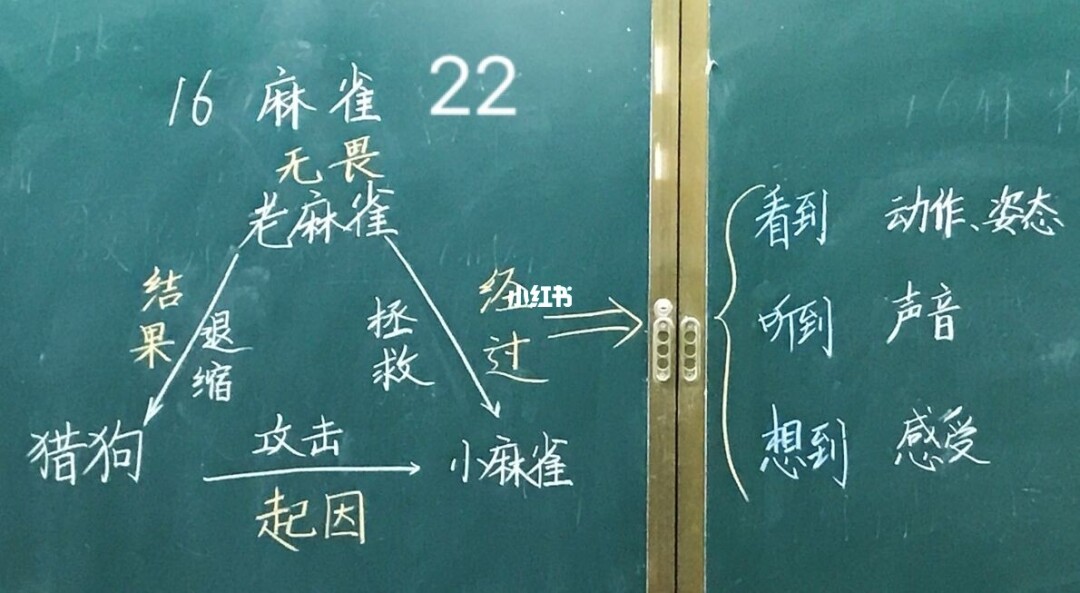 16 麻雀 22
无畏
老麻雀
结果
退缩
拯救
经过
小红书
猎狗
攻击
小麻雀
起因
看到 动作、姿态
听到 声音
想到 感受
16 麻雀